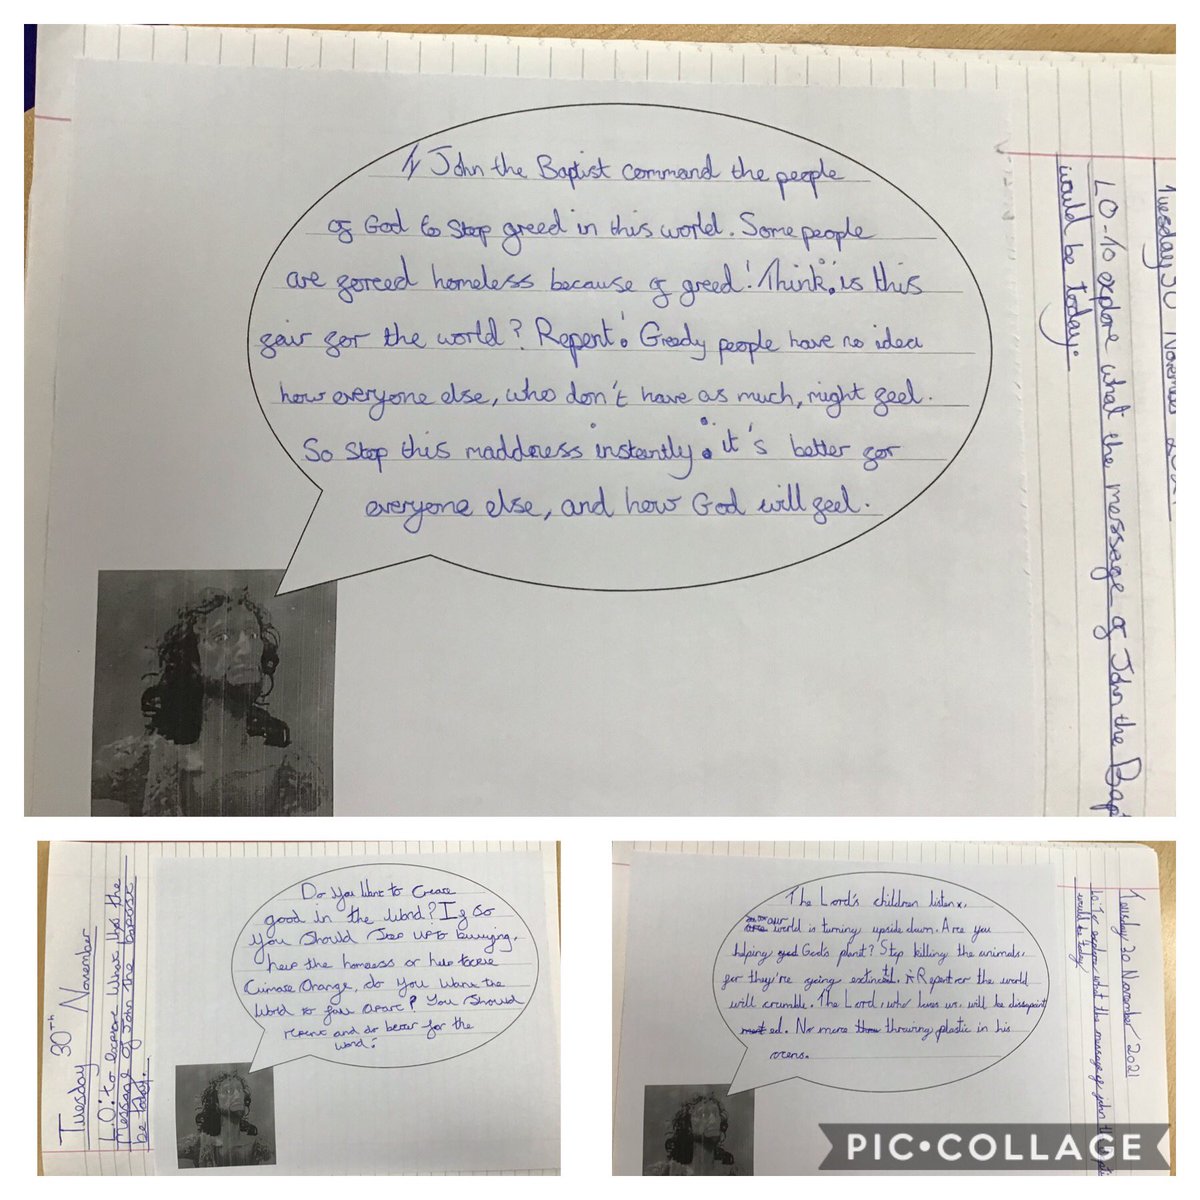 I John the Baptist command the people
of God to stop greed in this world. Some people
are forced homeless because of greed! Think: is this
fair for the world? Repent! Greedy people have no idea
how everyone else, who don't have as much, might feel.
So stop this maddness instantly: it's better for
everyone else, and how God will feel.
Tuesday 30 November 2021
LO-To explore what the message of John the Bap
would be today.
Do you want to create
good in the word? If so
you should stop
help the homeless or help
Climate Change, do you want the
World to fall apart? You should
repent and do better for the
word!
Tuesday 30th November
L.O: to explore what the
message of John the
be today.
The Lord's children listen,
our world is turning upside down. Are you
helping God's planet? Stop killing the animals,
for they're going extinct. Repent or the world
will crumble. The Lord, who loves us, will be dissapoint
ed. No more throwing plastic in his
Tuesday 30 November 2021
to explore what the message of john the
would be today
PIC•COLLAGE